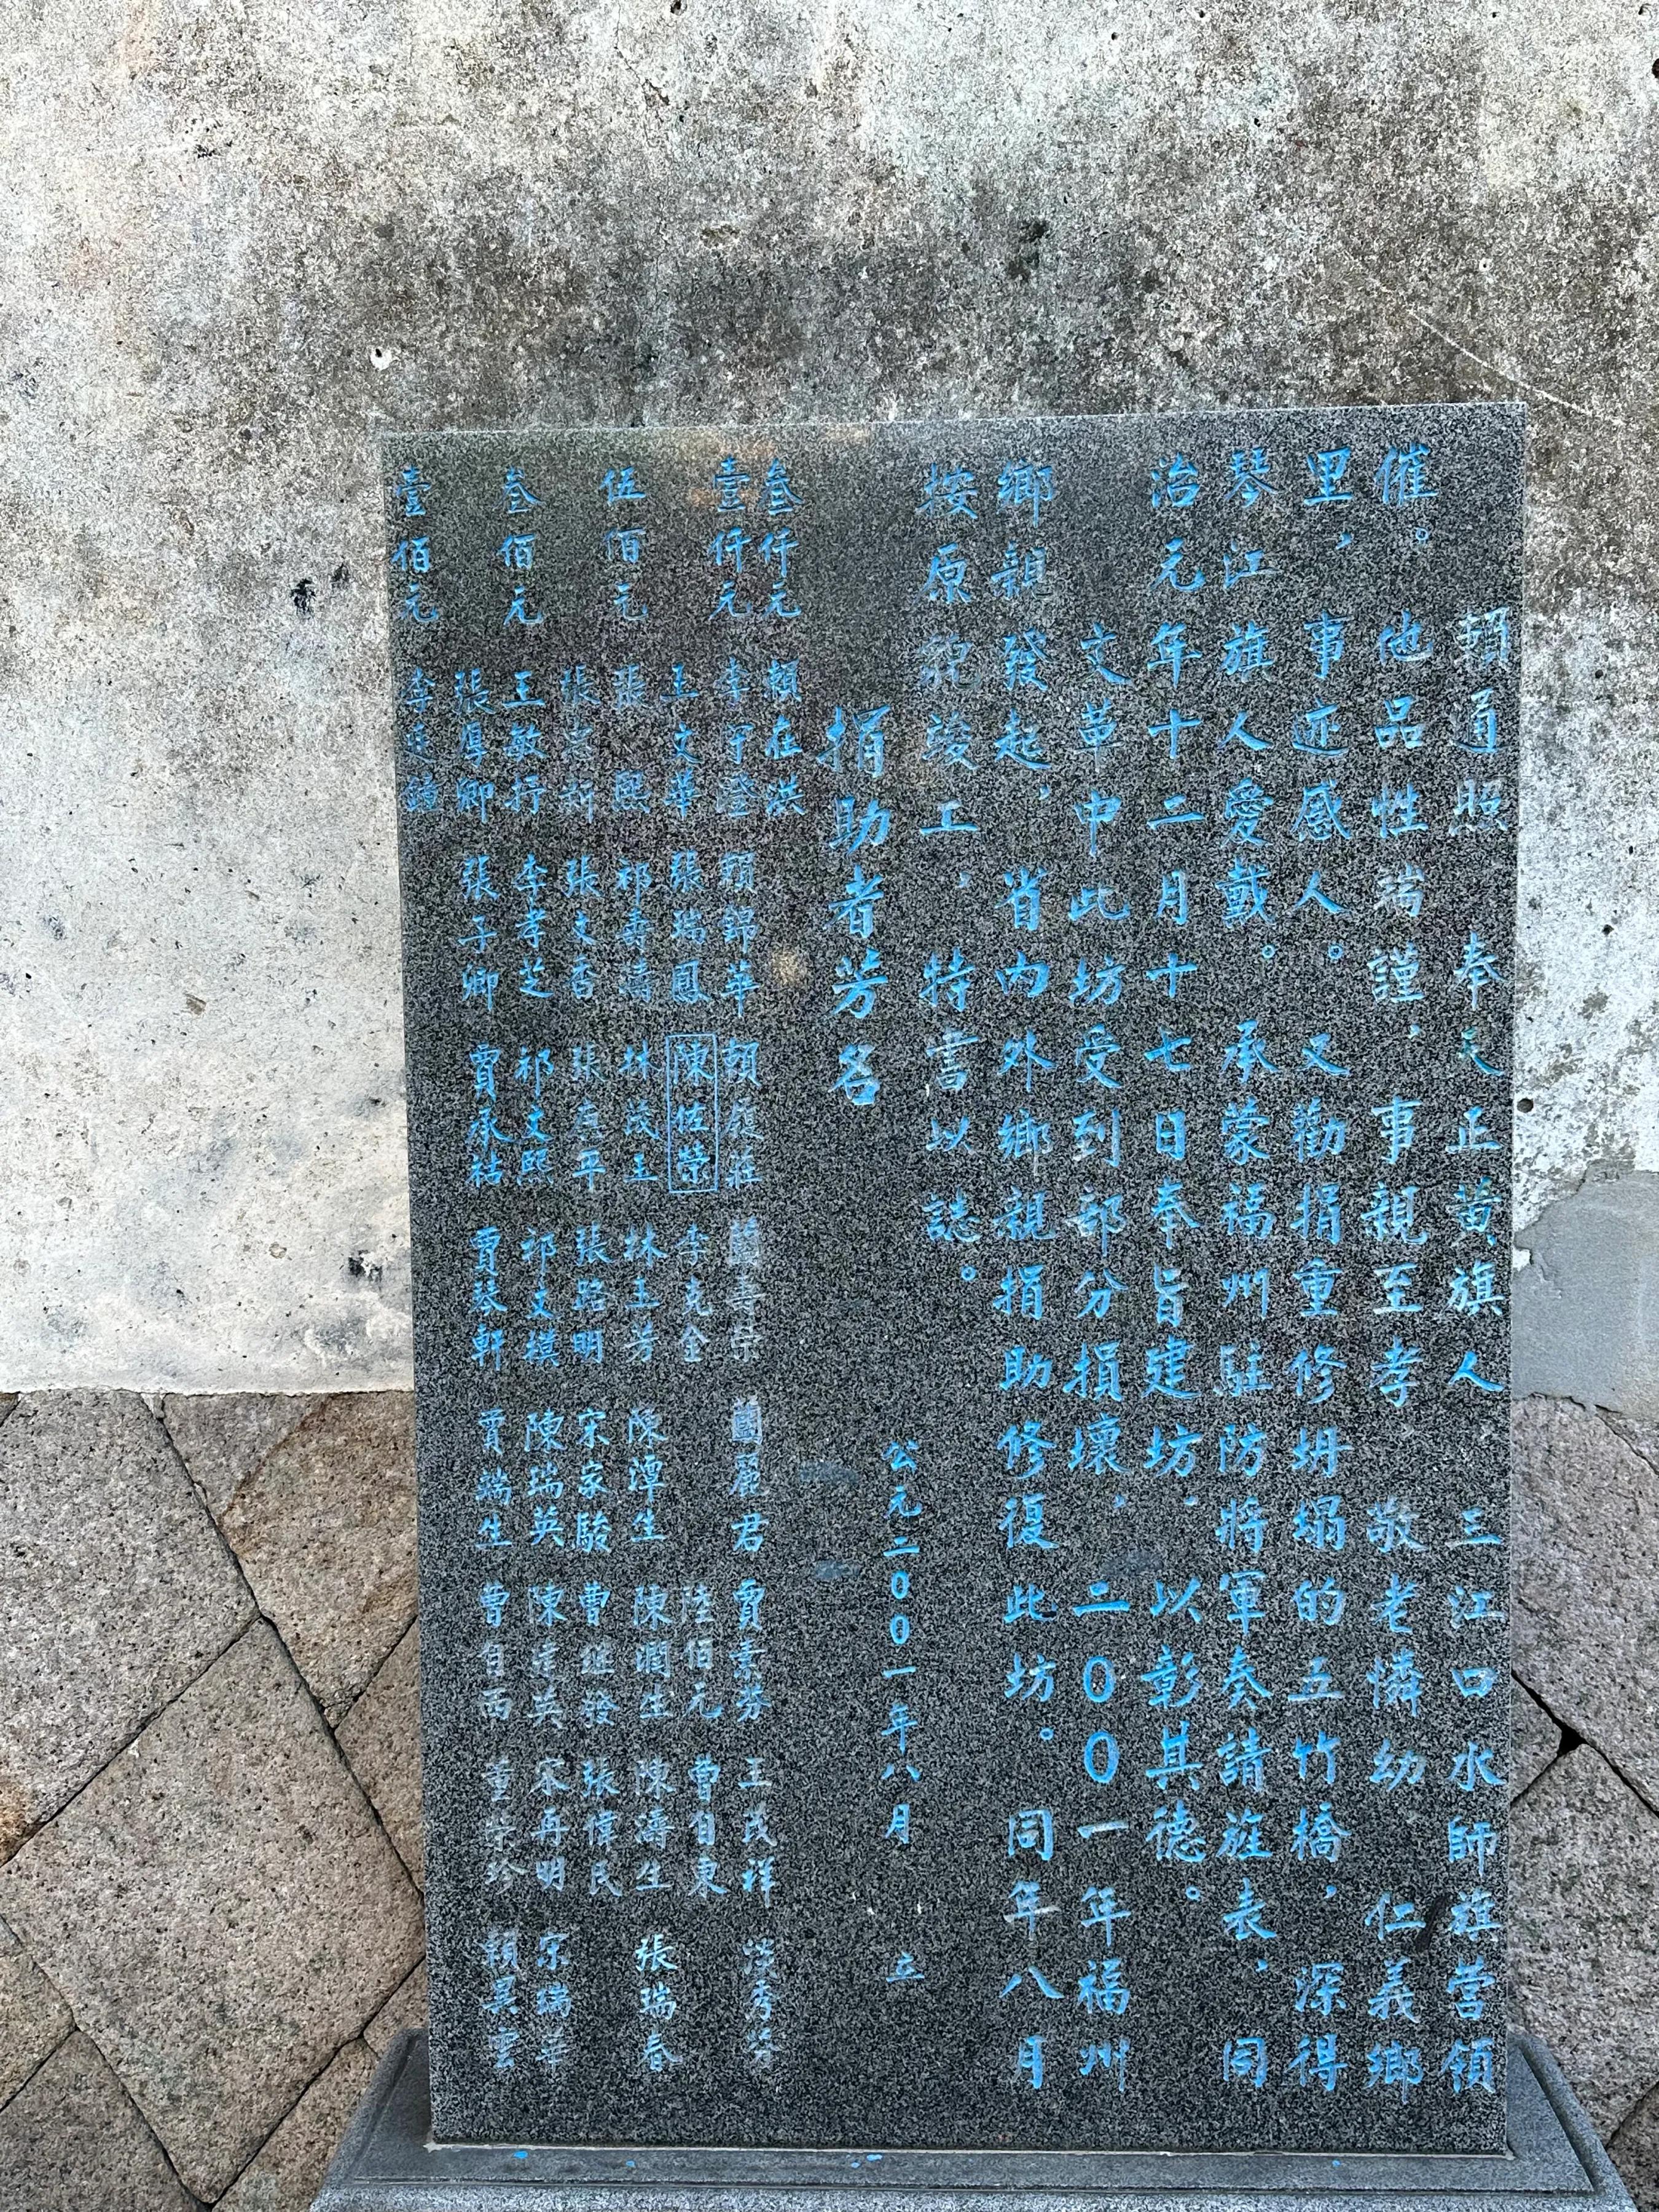 賴通照 奉天正黃旗人 三江口水師旗營領
催。他品性端謹、事親至孝 敬老憐幼 仁義鄉
里，事迹感人。又勸捐重修坍塌的五竹橋，深得
琴江旗人愛戴。承蒙福州駐防將軍奏請旌表、同
治元年十二月十七日奉旨建坊、以彰其德。
文革中此坊受到部分損壞、二00一年福州
鄉親發起、省內外鄉親捐助修復此坊。同年八月
按原貌竣工、特書以誌。
公元二00一年八月 立
捐助者芳名
叁仟元 賴在洪
壹仟元 李守澄 賴錦華 賴履莊 蘭壽榮 蘭麗君 賈素芬 王茂祥 淡秀琴
王文華 張瑞鳳 陳佐榮 李克全 陸佰元 曹自東
伍佰元 張熙 祁壽濤 林茂玉 林玉芳 陳潭生 陳潤生 陳濤生 張瑞春
張 新 張文香 張 平 張路明 宋家駿 曹繼發 張偉民
叁佰元 王敏行 李孝芝 祁文熙 祁文模 陳瑞英 陳 英 宋再明 宋瑞華
張厚卿 張子卿 賈承祜 賈琴軒 賈端生 曹自西 董榮珍 賴昊雲
壹佰元 李廷鏘